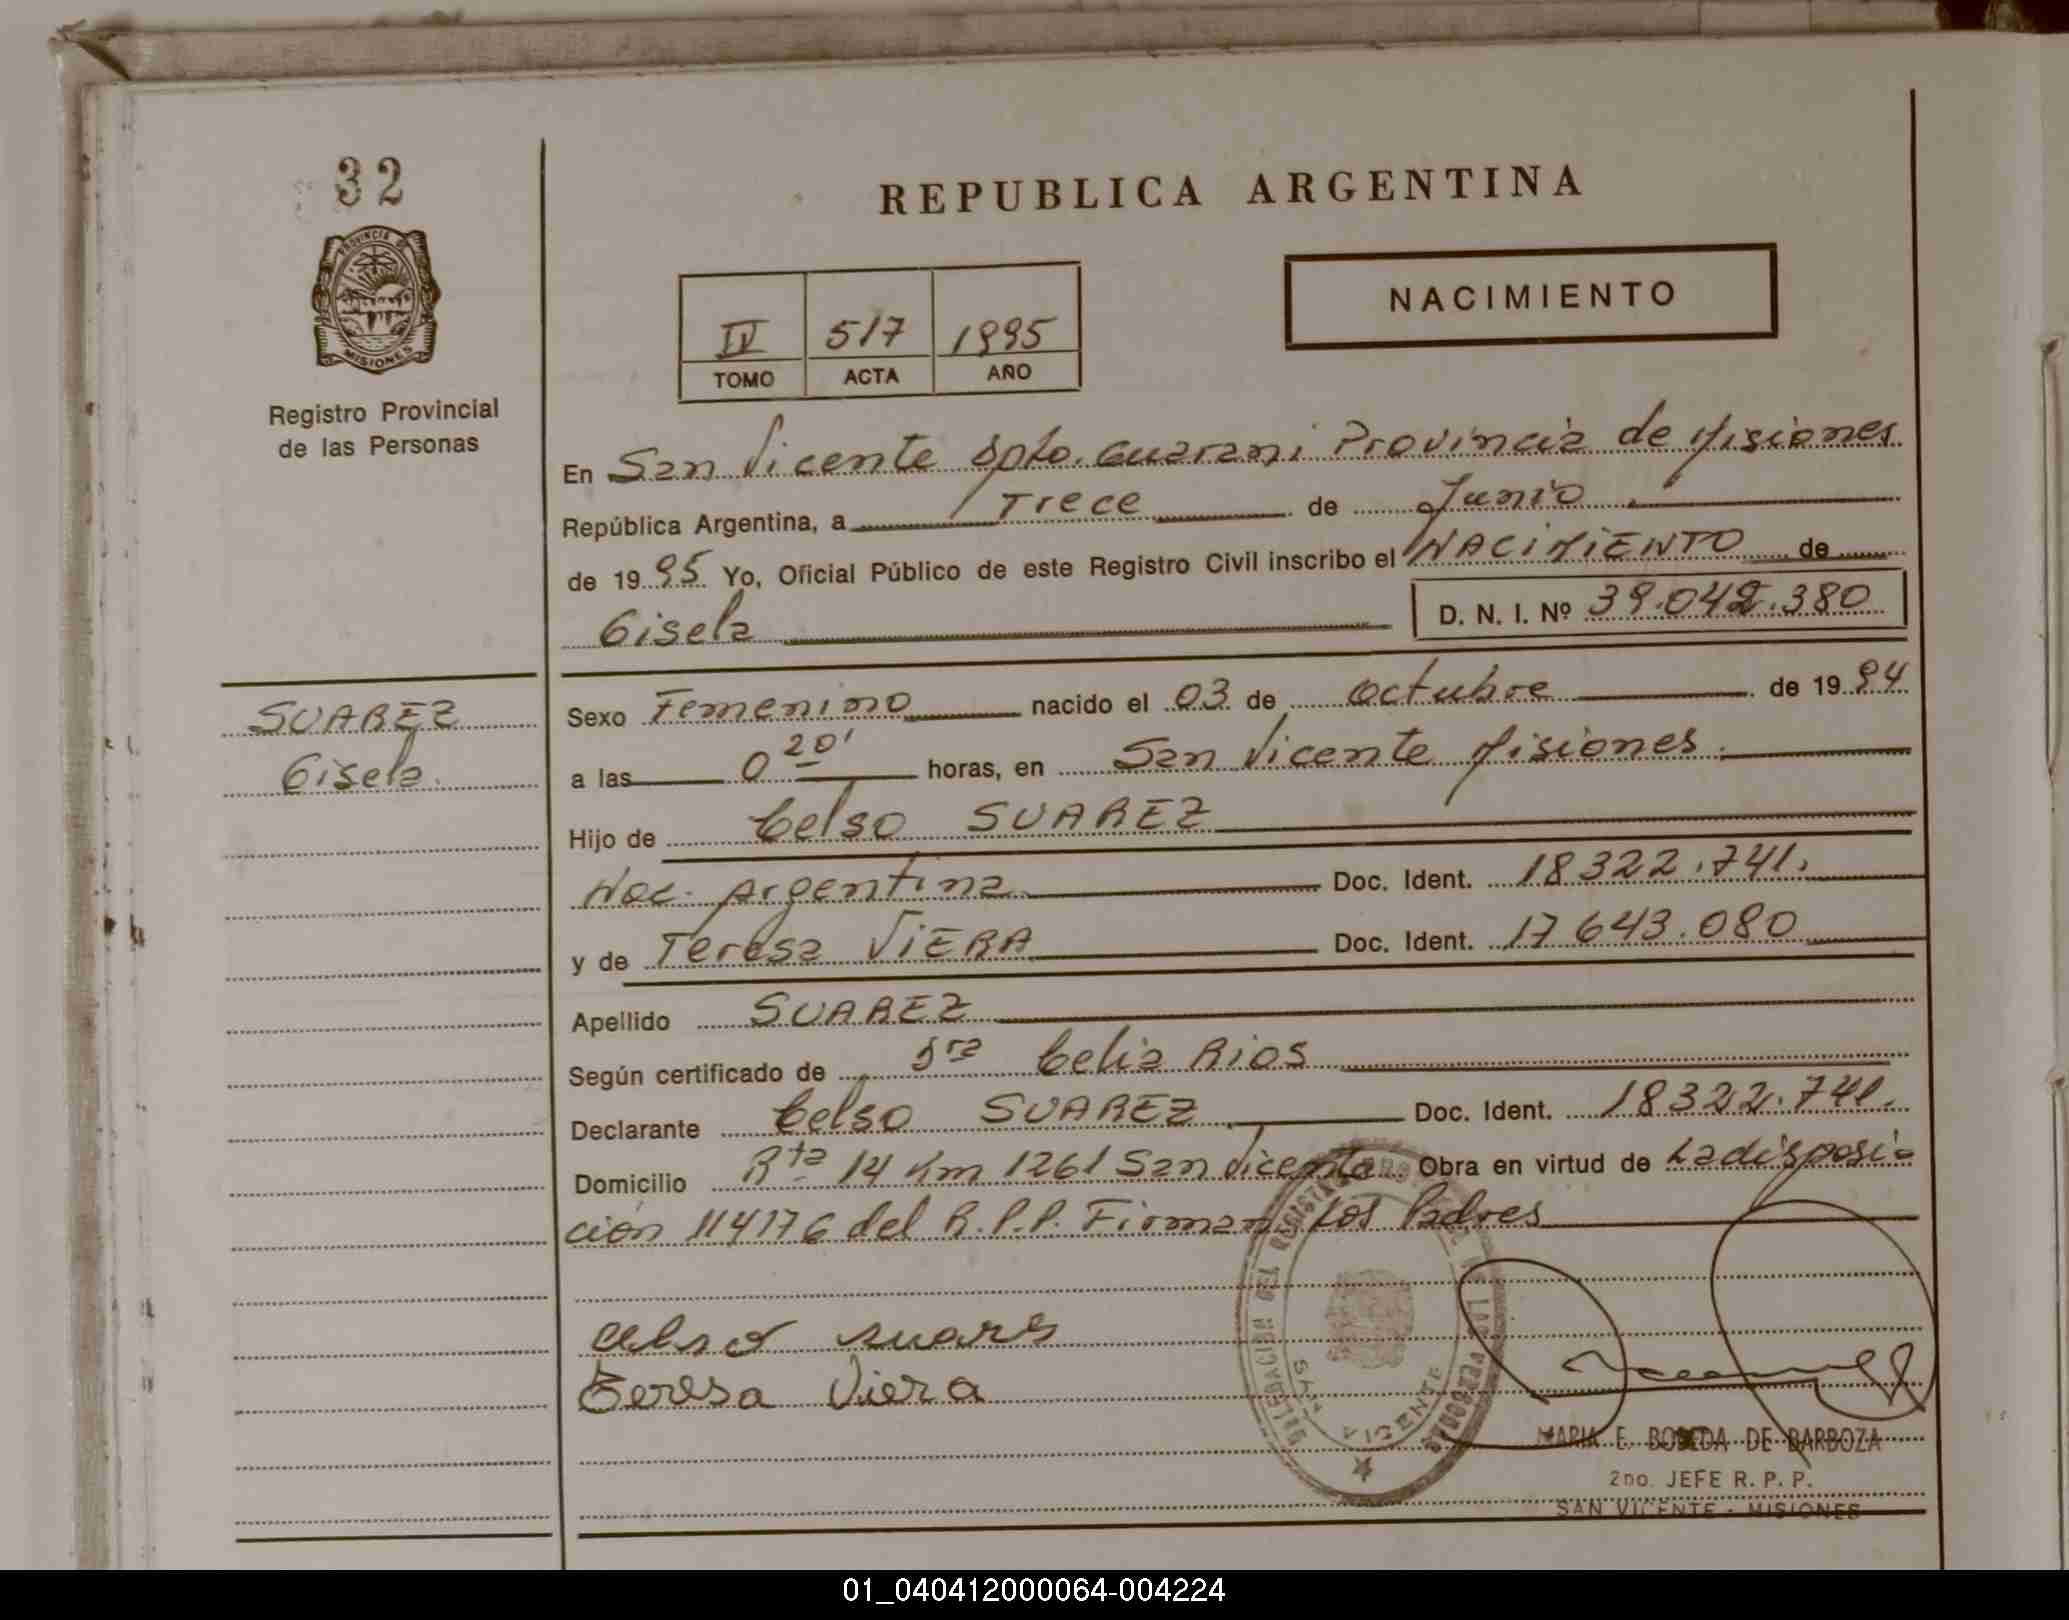 32
PROVINCIA DE
MISIONES
Registro Provincial
de las Personas
REPUBLICA ARGENTINA
NACIMIENTO
IV 517 1995
TOMO ACTA AÑO
En San Vicente Dpto. Guarani Provincia de Misiones
República Argentina, a Trece de Junio
de 1995 Yo, Oficial Público de este Registro Civil inscribo el NACIMIENTO de
Gisela D. N. I. Nº 39.042.380
SUAREZ
Gisela.
Sexo Femenino nacido el 03 de octubre de 1994
a las 0 20' horas, en San Vicente Misiones.
Hijo de Celso SUAREZ
Nac. Argentina Doc. Ident. 18322.741.
y de Teresa VIERA Doc. Ident. 17643.080
Apellido SUAREZ
Según certificado de Dra Celia Rios
Declarante Celso SUAREZ Doc. Ident. 18322.741.
Domicilio Rta 14 Km 1261 San Vicente Obra en virtud de La disposi-
ción 114176 del R.P.P. Firman los Padres
Celso suares
Teresa Viera
DELEGACION DEL REGISTRO DE LAS PERSONAS
SAN VICENTE
MARIA E. BOBEDA DE BARBOZA
2no. JEFE R. P. P.
SAN VICENTE - MISIONES
01_040412000064-004224